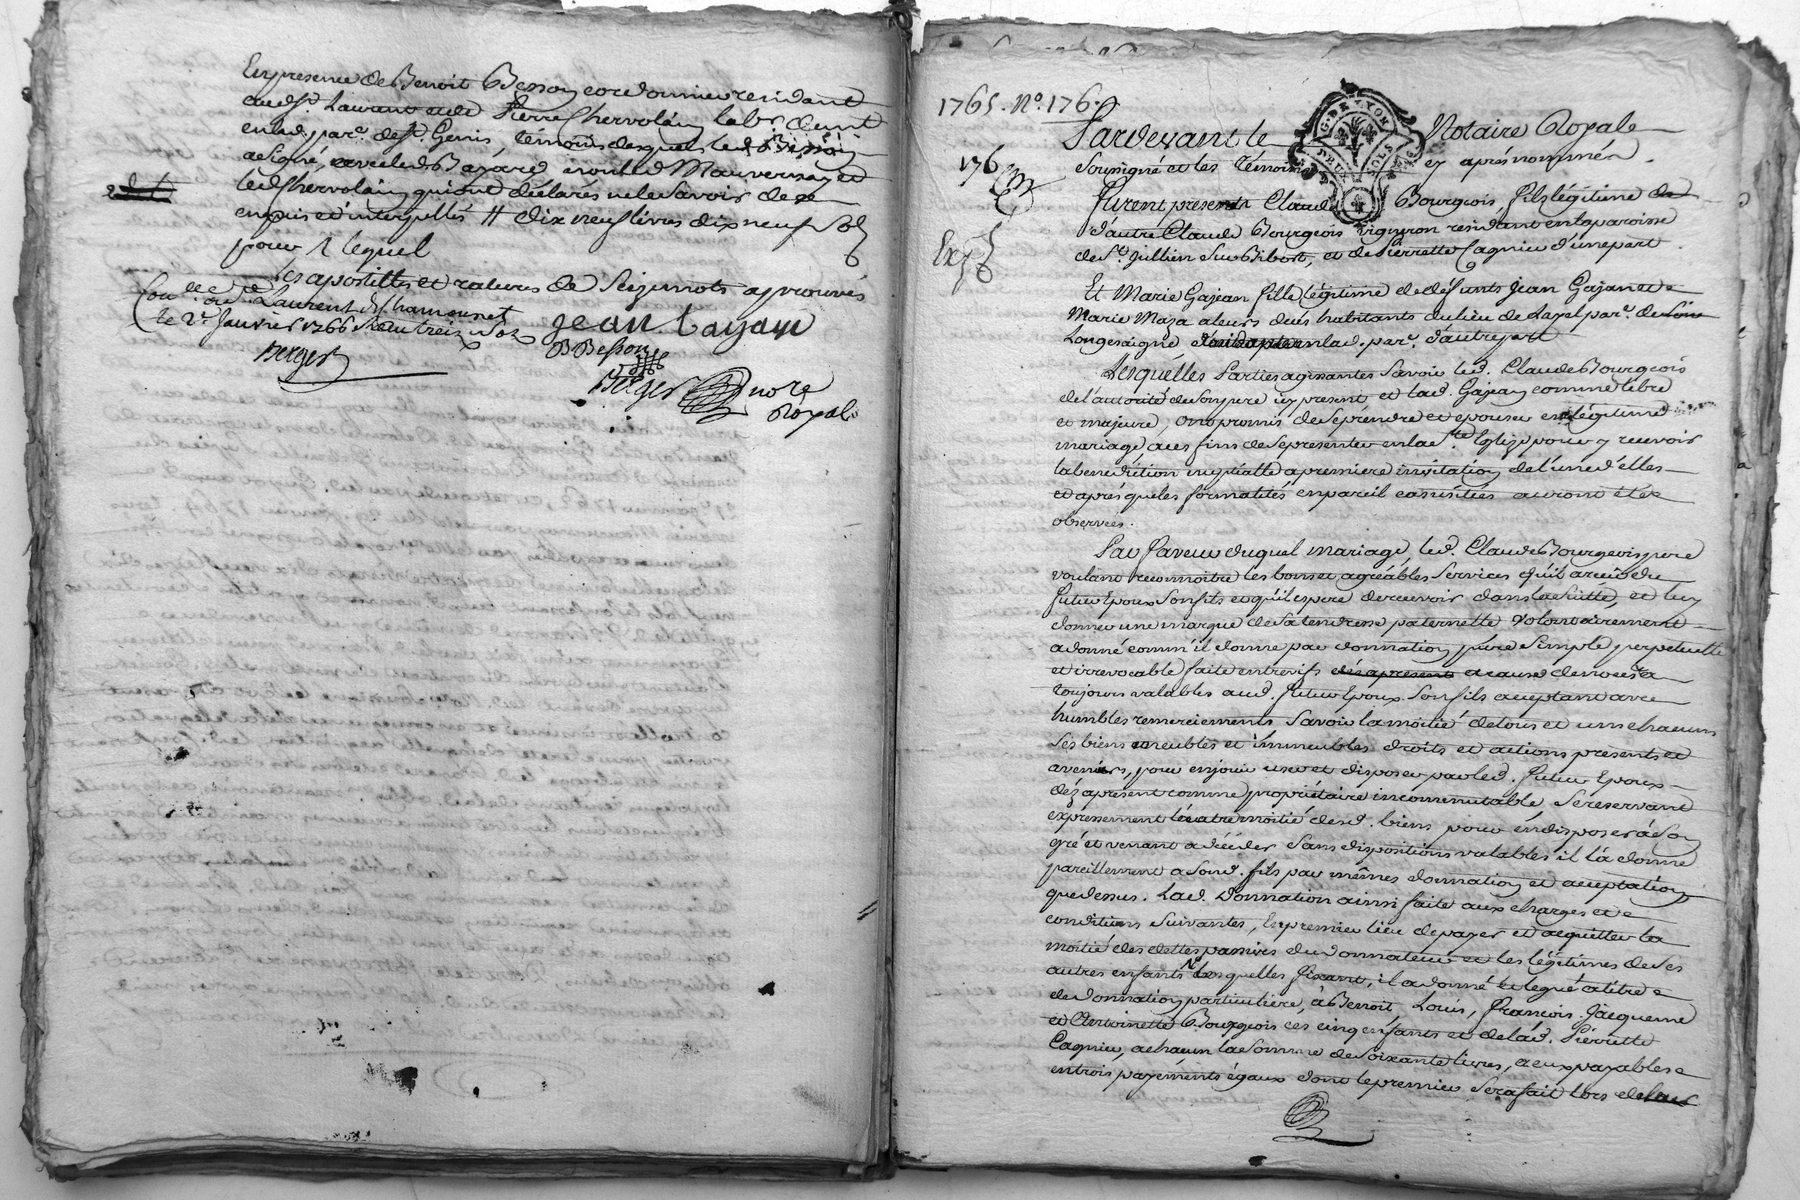 En presence de Benoit Besson cordonnier residant
aud. St. Laurent et de Pierre Chervolin labr. demt
en lad. parc. de St. Genis, témoins desquels led. Besson
a signé, avec led. Bayard, non led. Mauvernay et
led. Chervolin qui ont déclarés ne le savoir de ce
enquis et interpellés // dix neuf livres dix neuf sols
pour // lequel
les apostilles et ratures de seize mots approuvés
Con.lé
Laurent de Chamousset
le 2e. Janvier 1766 Reçu treize sols
Berger
Jean Bayard
B Besson
Berger nore
Royal
1765. No. 176.
Pardevant le Notaire Royal
G. DE LYON
DEUX SOLS
176
Soussigné et les témoins cy aprés nommés.
furent presents Claude Bourgeois, fils légitime de
d'autre Claude Bourgeois vigneron residant en la paroisse
Exp.
de St. Jullien sur Bibost, et de Pierrette Cagnieu d'une part.
Et Marie Gajean fille légitime de défunts Jean Gajan et
Marie Maza aleurs vivés habitants du lieu de Laval parc. de
Longesaigne en lad. parc. d'autre part
Lesquelles Parties agissantes savoir led. Claude Bourgeois
de l'autorité de son pere cy present et lad. Gajean comme libre
et majeure, ont promis de se prendre et epouser en légitime
mariage, a ces fins de se presenter en la Ste. Eglize pour y recevoir
la benediction nuptialle a premiere invitation de l'une d'elles
et aprés que les formalités en pareil cas usitées auront été
observées.
En faveur duquel mariage, led. Claude Bourgeois pere
voulant reconnoitre les bons et agréables services qu'il a reçu du
futur Epoux son fils et qu'il espere de recevoir dans la suitte, et luy
donner une marque de sa tendresse paternelle volontairement
a donné comm'il donne par donnation pure simple perpetuelle
et irrevocable faite entre vifs dés apresent a cause de noces a
toujours valables aud. futur Epoux son fils acceptant avec
humbles remerciements savoir la moitié de tous et uns chacuns
ses biens meubles et immeubles droits et actions presents et
avenirs, pour en jouir user et disposer par led. futur Epoux
déz apresent comme propriétaire incommutable se reservant
expressement l'autre moitié desd. biens pour en disposer à son
gré et venant a décéder sans dispositions valables il la donne
pareillement a sond. fils par mêmes donnation et acceptation
que dessus. Lad. Donnation ainsi faite aux charges et
conditions suivantes, En premier lieu de payer et acquitter la
moitié des dettes passives du donnateur et les légitimes de ses
autres enfants lesquelles fixant, il a donné et legué a titre
de donnation particuliere, à Benoit, Louis, François, Jacqueme
et Antoinette Bourgeois ces cinq enfants et de lad. Pierrette
Cagnieu, a chacun la somme de soixante livres, a eux payables
en trois payements égaux dont le premier sera fait lors de